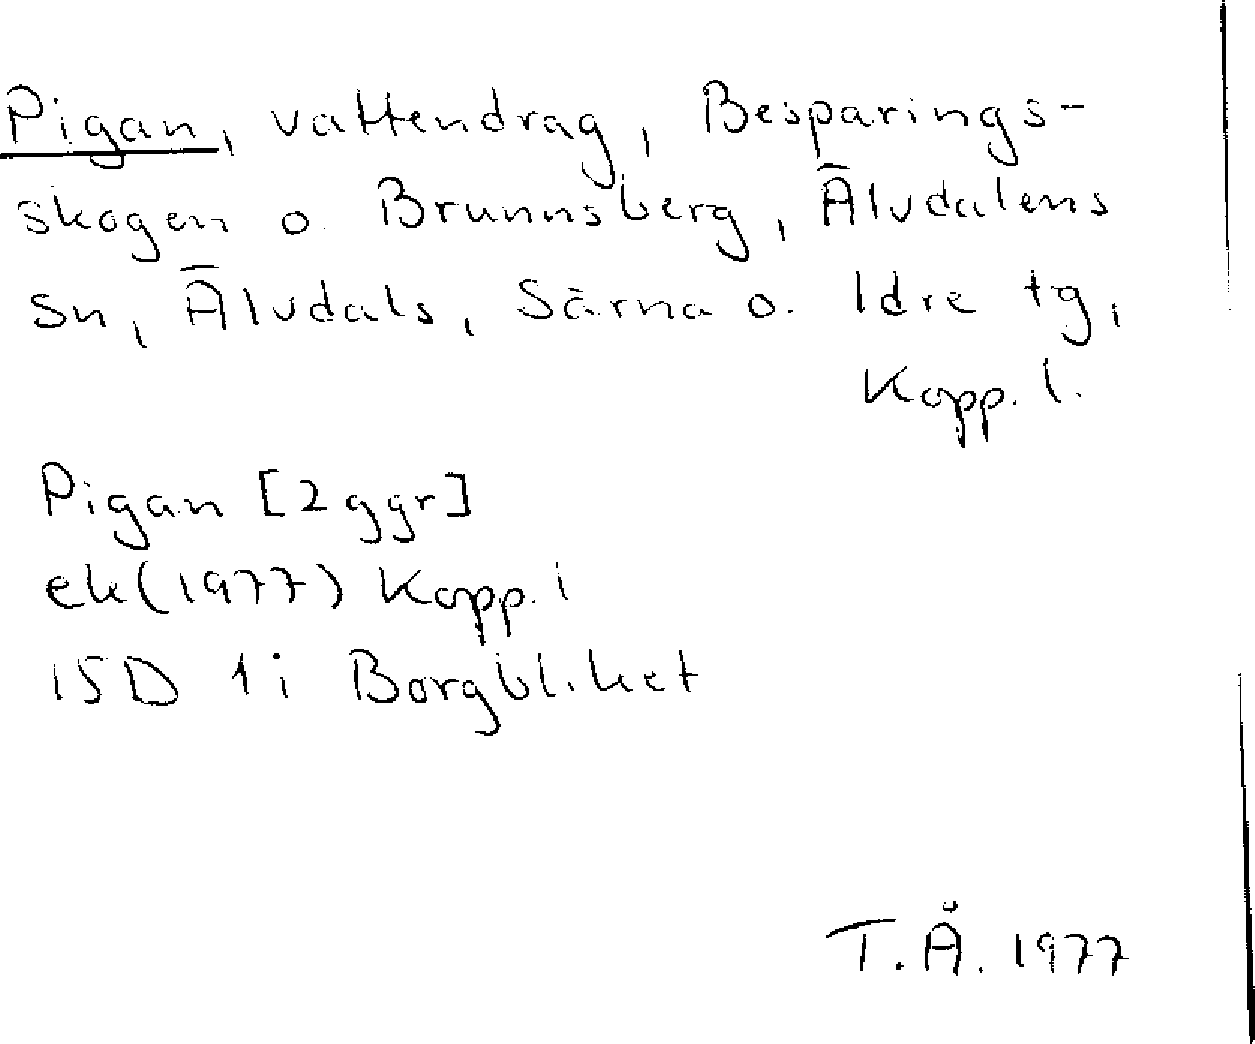 Pigan, vattendrag, Besparings-
skogen o. Brunnsberg, Älvdalens
sn, Älvdals, Särna o. Idre tg,
Kopp. l.
Pigan [2 ggr]
ek(1977) Kopp. l
15D 1i Borgbliket
T.Å. 1977